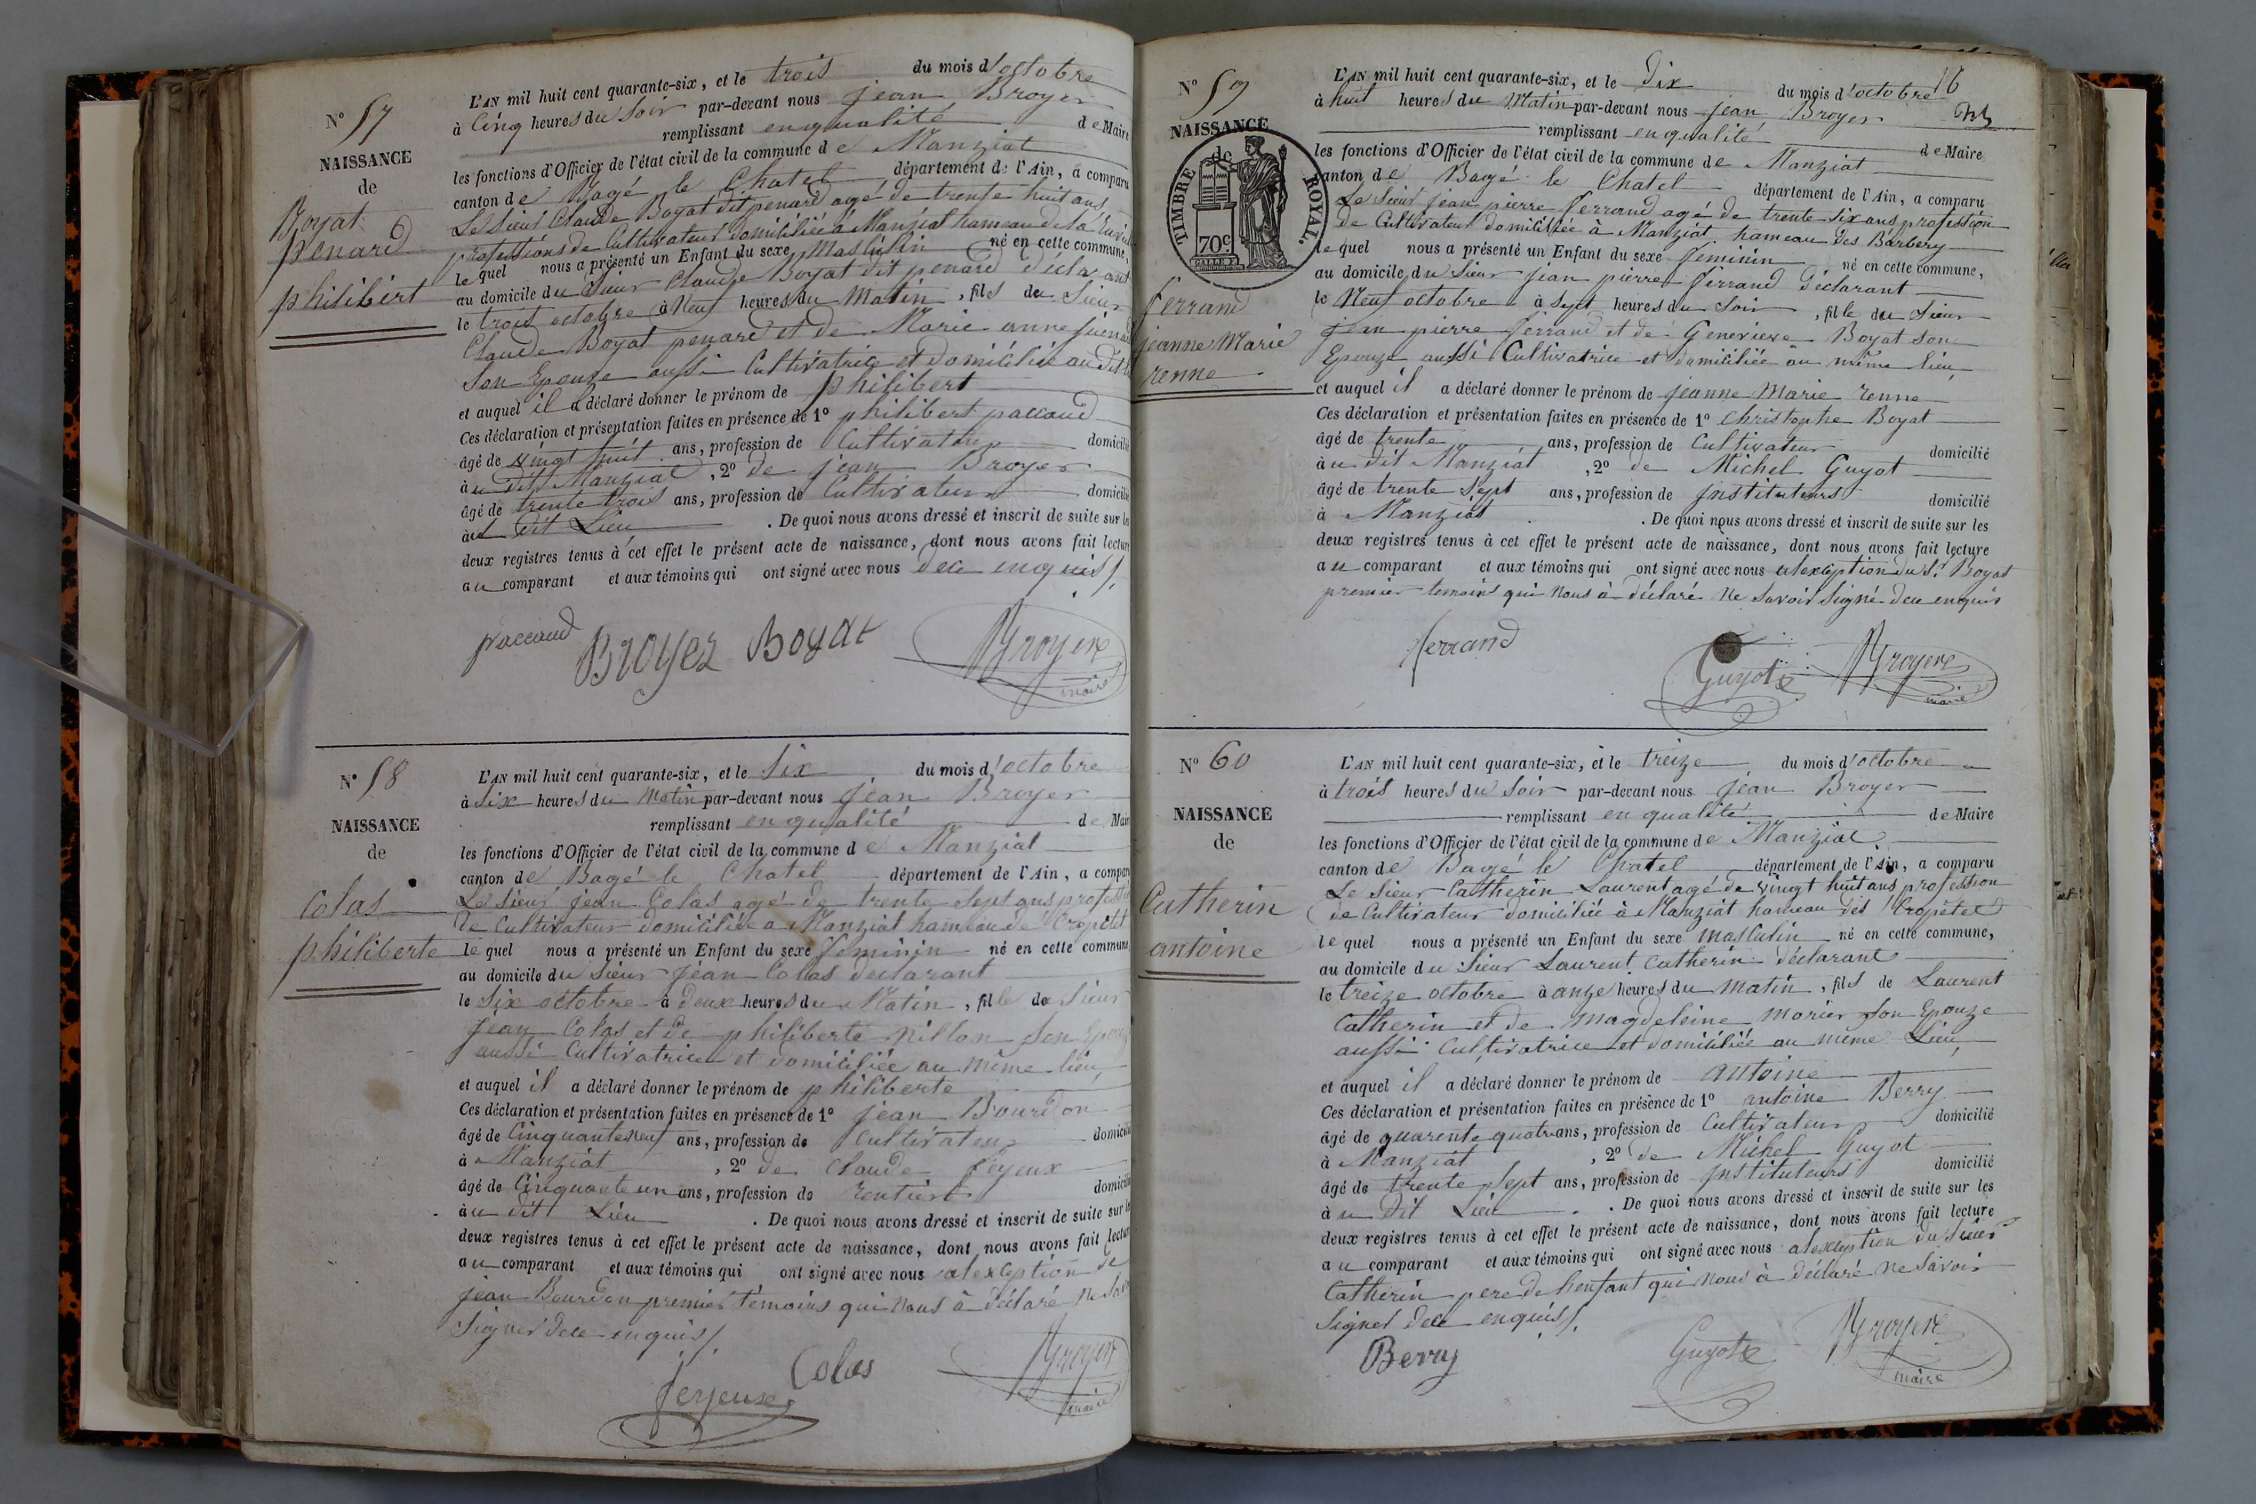 N° 57
NAISSANCE
de
Boyat
penard
philibert
L'AN mil huit cent quarante-six, et le trois du mois d'octobre
à Cinq heures du Soir par-devant nous jean Broyer
remplissant enqualité de Maire
les fonctions d'Officier de l'état civil de la commune de Manziat
canton de Bagé le Chatel département de l'Ain, a comparu
Le Sieur Claude Boyat dit penard agé de trente huit ans
profession de Cultivateur domicilié à Manziat hameau de la
le quel nous a présenté un Enfant du sexe Masculin né en cette commune,
au domicile du Sieur Claude Boyat dit penard déclarant
le trois octobre à Neuf heures du Matin, fils du Sieur
Claude Boyat penard et de Marie anne
Son Epouze aussi Cultivatrice et domiciliée au dit
et auquel il a déclaré donner le prénom de philibert
Ces déclaration et présentation faites en présence de 1° philibert paccaud
âgé de vingt huit ans, profession de Cultivateur domicilié
à u dit Manziat, 2° de jean Broyer
âgé de trente trois ans, profession de Cultivateur domicilié
àu dit Lieu. De quoi nous avons dressé et inscrit de suite sur les
deux registres tenus à cet effet le présent acte de naissance, dont nous avons fait lecture
au comparant et aux témoins qui ont signé avec nous dece enquis /.
paccaud Broyer Boyat Broyer
maire
N° 58
NAISSANCE
de
Colas
philiberte
L'AN mil huit cent quarante-six, et le Six du mois d'octobre
à six heures du Matin par-devant nous jean Broyer
remplissant enqualité de Maire
les fonctions d'Officier de l'état civil de la commune de Manziat
canton de Bagé le Chatel département de l'Ain, a comparu
Le Sieur jean Colas agé de trente Sept ans profession
de Cultivateur domicilié a Manziat hameau de Cropetet
le quel nous a présenté un Enfant du sexe feminin né en cette commune
au domicile du Sieur Jean Colas déclarant
le Six octobre à deux heures du Matin, fille de Sieur
Jean Colas et de philiberte Nillon Son Epouze
aussi Cultivatrice et domiciliée au même lieu
et auquel il a déclaré donner le prénom de philiberte
Ces déclaration et présentation faites en présence de 1° jean Bourdon
âgé de Cinquante neuf ans, profession de Cultivateur domicilié
à Manziat, 2° de Claude feyeux
âgé de Cinquante un ans, profession de rentiers domicilié
à u dit Lieu. De quoi nous avons dressé et inscrit de suite sur les
deux registres tenus à cet effet le présent acte de naissance, dont nous avons fait lecture
au comparant et aux témoins qui ont signé avec nous alexception de
jean Bourdon premier témoins qui nous à déclaré ne Savoir
Signer dece enquis /.
feyeux Colas Broyer
maire
16
N° 59
NAISSANCE
de
TIMBRE ROYAL.
70c.
ferrand
jeanne Marie
renne
L'AN mil huit cent quarante-six, et le Dix du mois d'octobre
à huit heures du Matin par-devant nous jean Broyer
remplissant enqualité de Maire
les fonctions d'Officier de l'état civil de la commune de Manziat
canton de Bagé le Chatel département de l'Ain, a comparu
Le Sieur jean pierre ferrand agé de trente Six ans profession
de Cultivateur domiciliée à Manziat hameau des Barbery
le quel nous a présenté un Enfant du sexe feminin né en cette commune,
au domicile du Sieur jean pierre ferrand déclarant
le Neuf octobre à Sept heures du Soir, fille du Sieur
jean pierre ferrand et de Genevieve Boyat son
Epouze aussi Cultivatrice et domiciliée au même lieu
et auquel il a déclaré donner le prénom de jeanne Marie renne
Ces déclaration et présentation faites en présence de 1° Christophe Boyat
âgé de trente ans, profession de Cultivateur domicilié
àu dit Manziat, 2° de Michel Guyot
âgé de trente Sept ans, profession de Instituteurs domicilié
à Manziat. De quoi nous avons dressé et inscrit de suite sur les
deux registres tenus à cet effet le présent acte de naissance, dont nous avons fait lecture
au comparant et aux témoins qui ont signé avec nous alexception du Sr Boyat
premier temoins qui nous à déclaré ne Savoir Signé dece enquis
ferrand Guyot Broyer
maire
N° 60
NAISSANCE
de
Catherin
antoine
L'AN mil huit cent quarante-six, et le treize du mois d'octobre
à trois heures du Soir par-devant nous jean Broyer
remplissant en qualité de Maire
les fonctions d'Officier de l'état civil de la commune de Manziat
canton de Bagé le Chatel département de l'Ain, a comparu
Le Sieur Catherin Laurent agé de vingt huit ans profession
de Cultivateur domiciliée à Manziat hameau des Cropetet
le quel nous a présenté un Enfant du sexe masculin né en cette commune,
au domicile du Sieur Laurent Catherin déclarant
le treize octobre à onze heures du matin, fils de Laurent
Catherin et de Magdeleine Morier Son Epouze
aussi Cultivatrice et domiciliée au même Lieu
et auquel il a déclaré donner le prénom de antoine
Ces déclaration et présentation faites en présence de 1° antoine Berry
âgé de quarente quatre ans, profession de Cultivateur domicilié
à Manziat, 2° de Michel Guyot
âgé de trente Sept ans, profession de Instituteurs domicilié
à u dit Lieu. De quoi nous avons dressé et inscrit de suite sur les
deux registres tenus à cet effet le présent acte de naissance, dont nous avons fait lecture
au comparant et aux témoins qui ont signé avec nous alexception du Sieur
Catherin pere de lenfant qui nous à déclaré ne Savoir
Signer dece enquis /.
Berry Guyot Broyer
maire